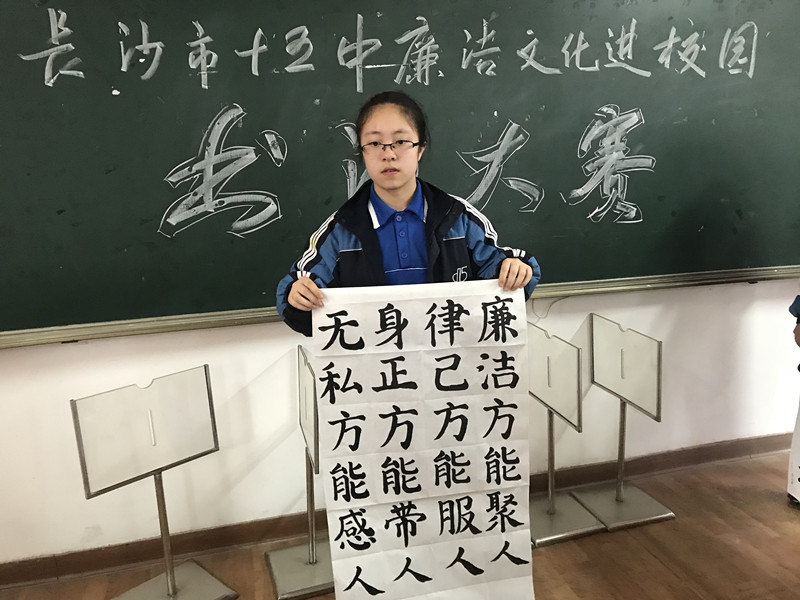 长沙市十五中廉洁文化进校园
书法大赛
廉洁方能聚人
律己方能服人
身正方能带人
无私方能感人
15